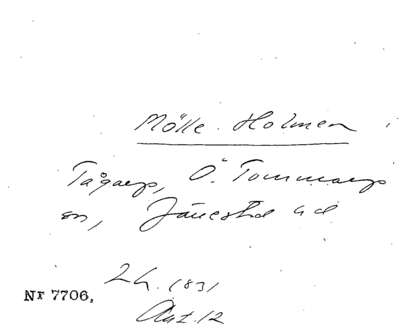 Mölle-Holmen
Tågarp, Ö. Tommarps
sn, Järrestad hd
Lh. 1831
Nr 7706.
Akt. 12